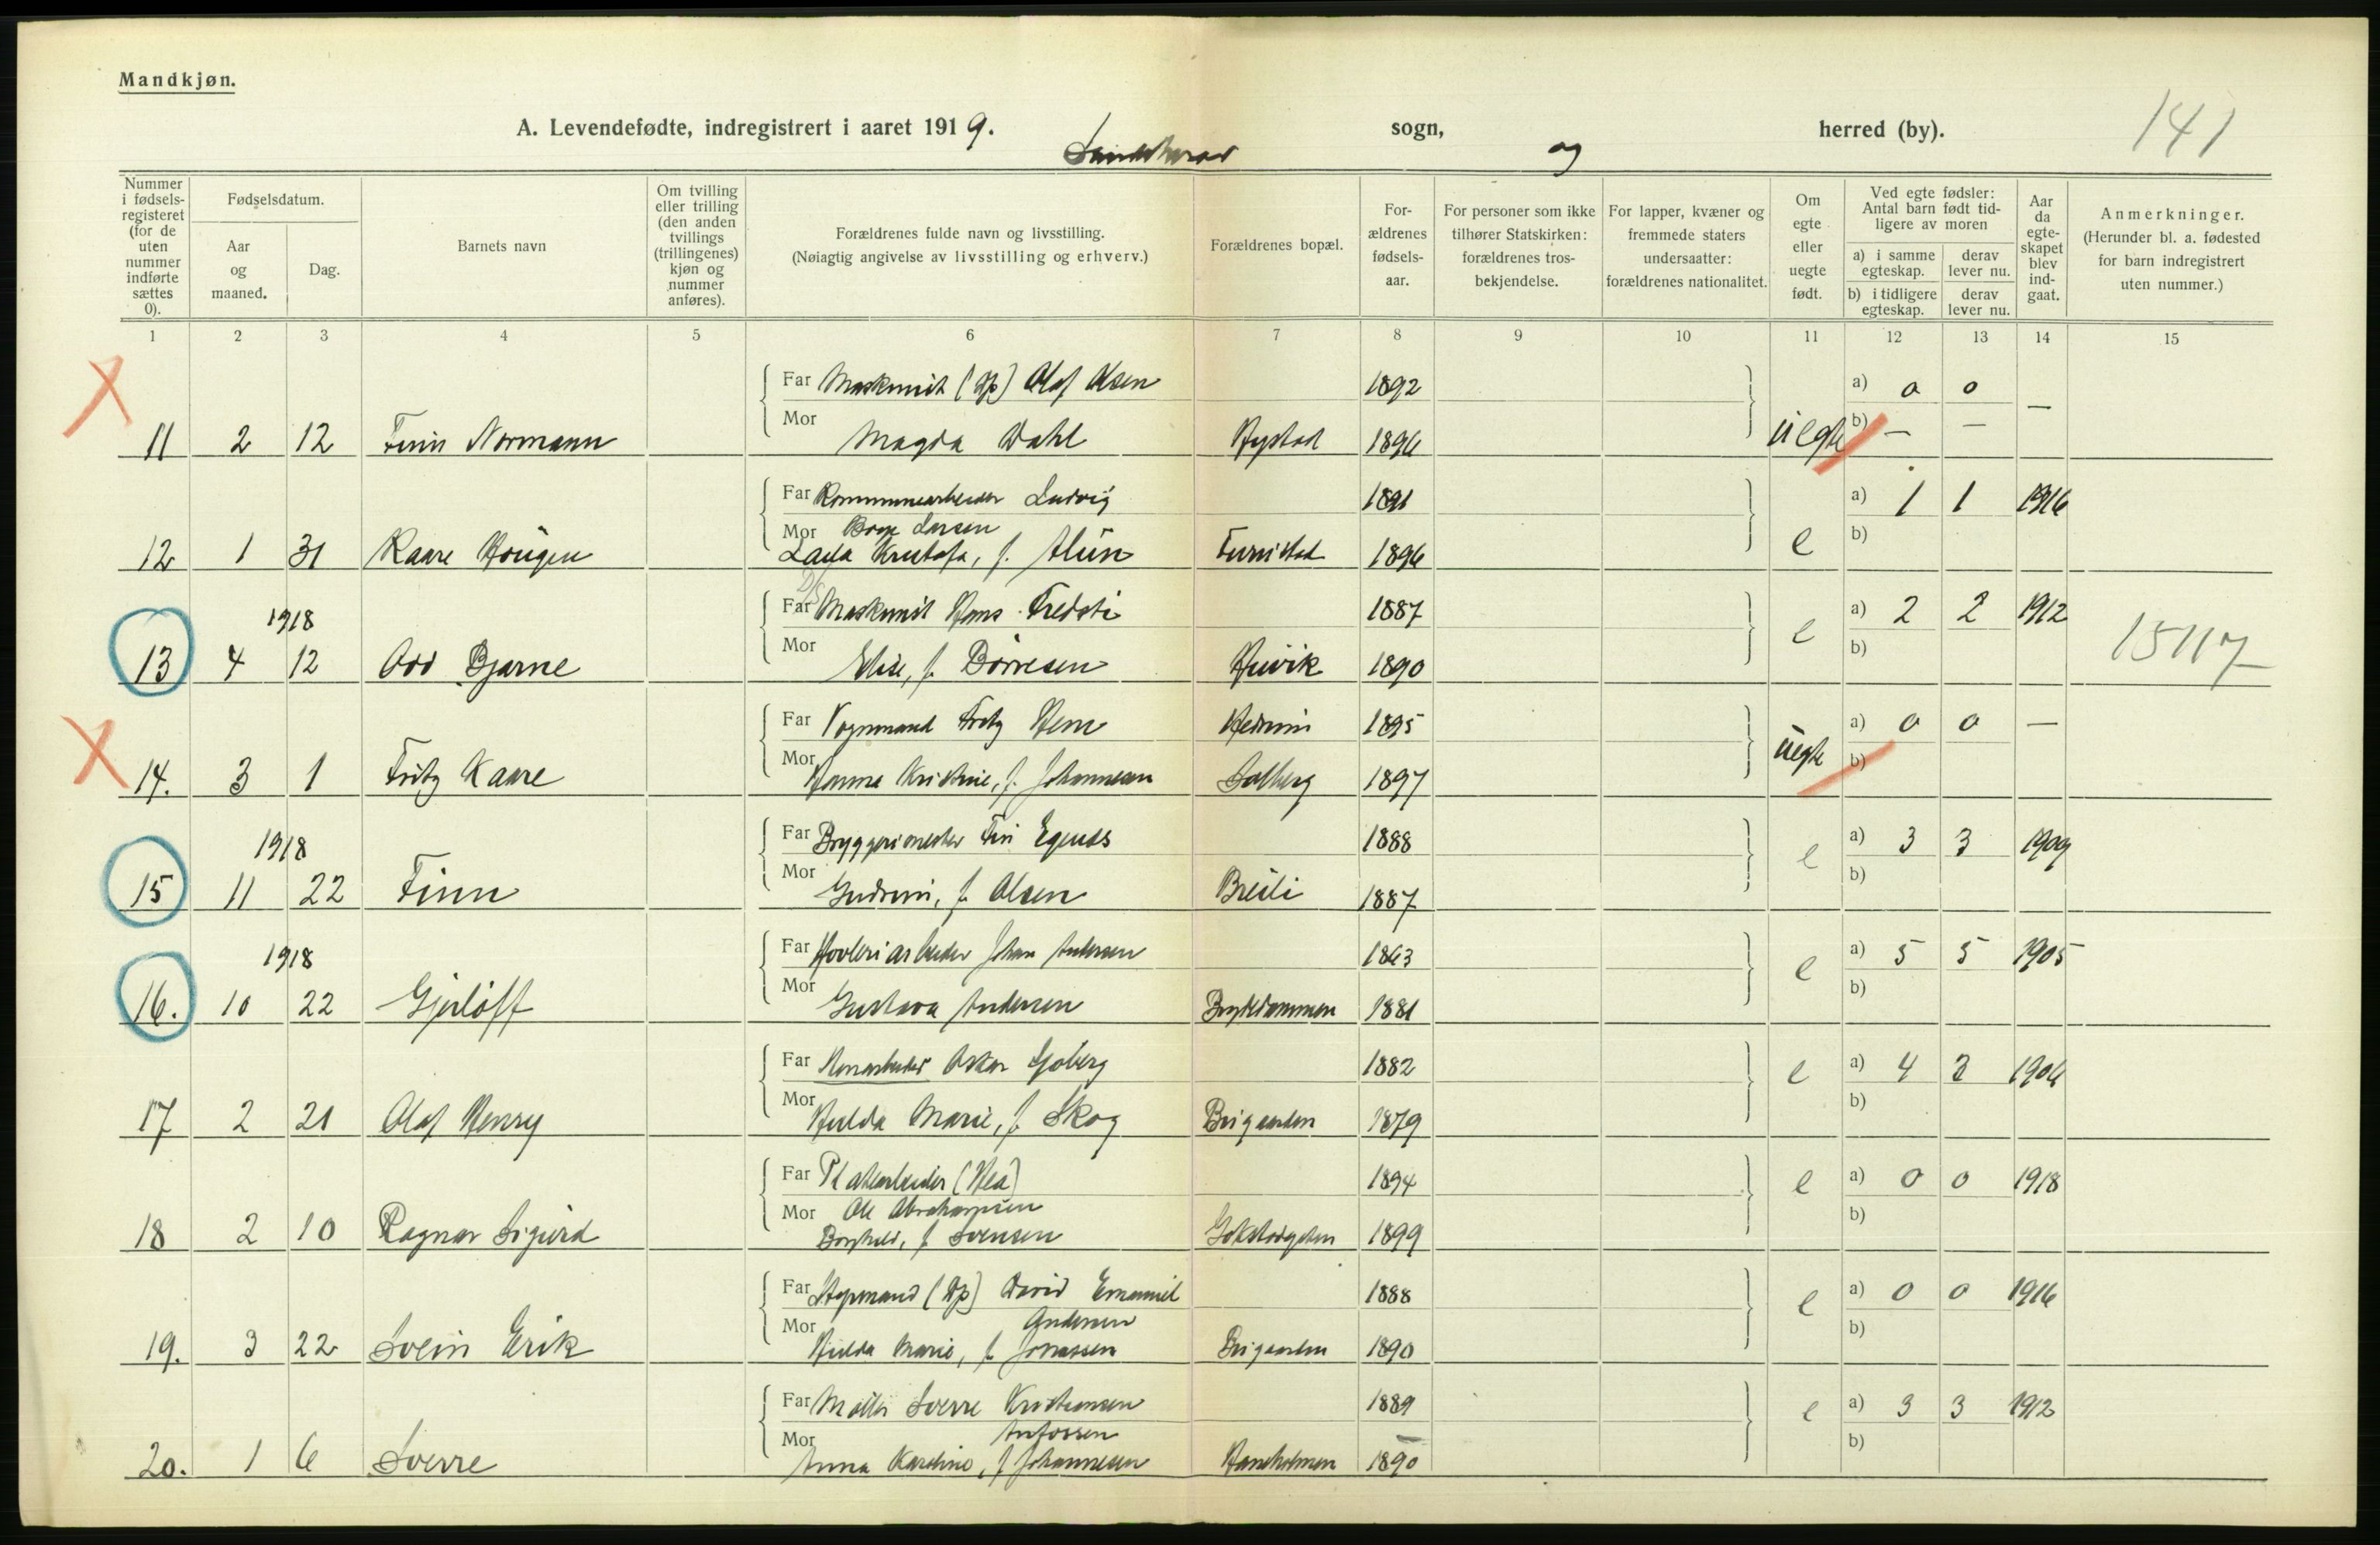 Mandkjøn.
A. Levendefødte, indregistrert i aaret 1919. Sandeherad sogn, og herred (by). 141
Nummer i fødsels-registeret (for de uten nummer indførte sættes 0).
Fødselsdatum.
Aar og maaned.
Dag.
Barnets navn
Om tvilling eller trilling (den anden tvillings (trillingenes) kjøn og nummer anføres).
Forældrenes fulde navn og livsstilling.
(Nøiagtig angivelse av livsstilling og erhverv.)
Forældrenes bopæl.
For-ældrenes fødsels-aar.
For personer som ikke tilhører Statskirken: forældrenes tros-bekjendelse.
For lapper, kvæner og fremmede staters undersaatter: forældrenes nationalitet.
Om egte eller uegte født.
Ved egte fødsler: Antal barn født tid-ligere av moren
a) i samme egteskap. derav lever nu.
b) i tidligere egteskap. derav lever nu.
Aar da egte-skapet blev ind-gaat.
Anmerkninger.
(Herunder bl. a. fødested for barn indregistrert uten nummer.)
1 2 3 4 5 6 7 8 9 10 11 12 13 14 15
Far Maskinist Olaf Olsen 1892 a) 0 0 —
11 2 12 Finn Normann Mor Magda Dahl Nystad 1896 uegte b) — —
Far Kommunearbeider Ludvig 1891 a) 1 1 1916
Mor Larsen
12 1 31 Kaare Haugen Kristofa, f. Furustad 1896 e b)
1918 Far Maskinist Hans Fredsti 1887 a) 2 2 1912
13 4 12 Odd Bjarne Mor Elise, f. Børresen 1890 e b) 15117
Far Vognmand Fritz Hem Hedrum 1895 a) 0 0 —
14. 3 1 Fritz Kaare Mor Hanna Kristine, f. Johannesen Solberg 1897 uegte b)
1918 Far Bryggerimester 1888 a) 3 3 1909
15 11 22 Finn Mor Gudrun, f. Olsen 1887 e b)
1918 Far Høvleriarbeider Johan Andersen 1863 a) 5 5 1905
16. 10 22 Gjerløff Mor Gustava Andersen Brydedammen 1881 e b)
Far Oskar Sjøberg 1882 a) 4 3 1906
17 2 21 Olaf Henry Mor Hulda Marie, f. Skog Brigaarden 1879 e b)
Far Platearbeider 1894 a) 0 0 1918
Mor Ole Abrahamsen
18 2 10 Ragnar Sigurd Borghild, f. Svensen Gokstadgaten 1899 e b)
Far David Emanuel 1888 a) 0 0 1916
Mor Andersen
19. 3 22 Svein Erik Hulda Marie, f. Jonassen Brigaarden 1890 e b)
Far Møller Sverre Kristiansen 1889 a) 3 3 1912
Mor
20. 1 6 Sverre Anna Karoline, f. Johannesen 1890 e b)